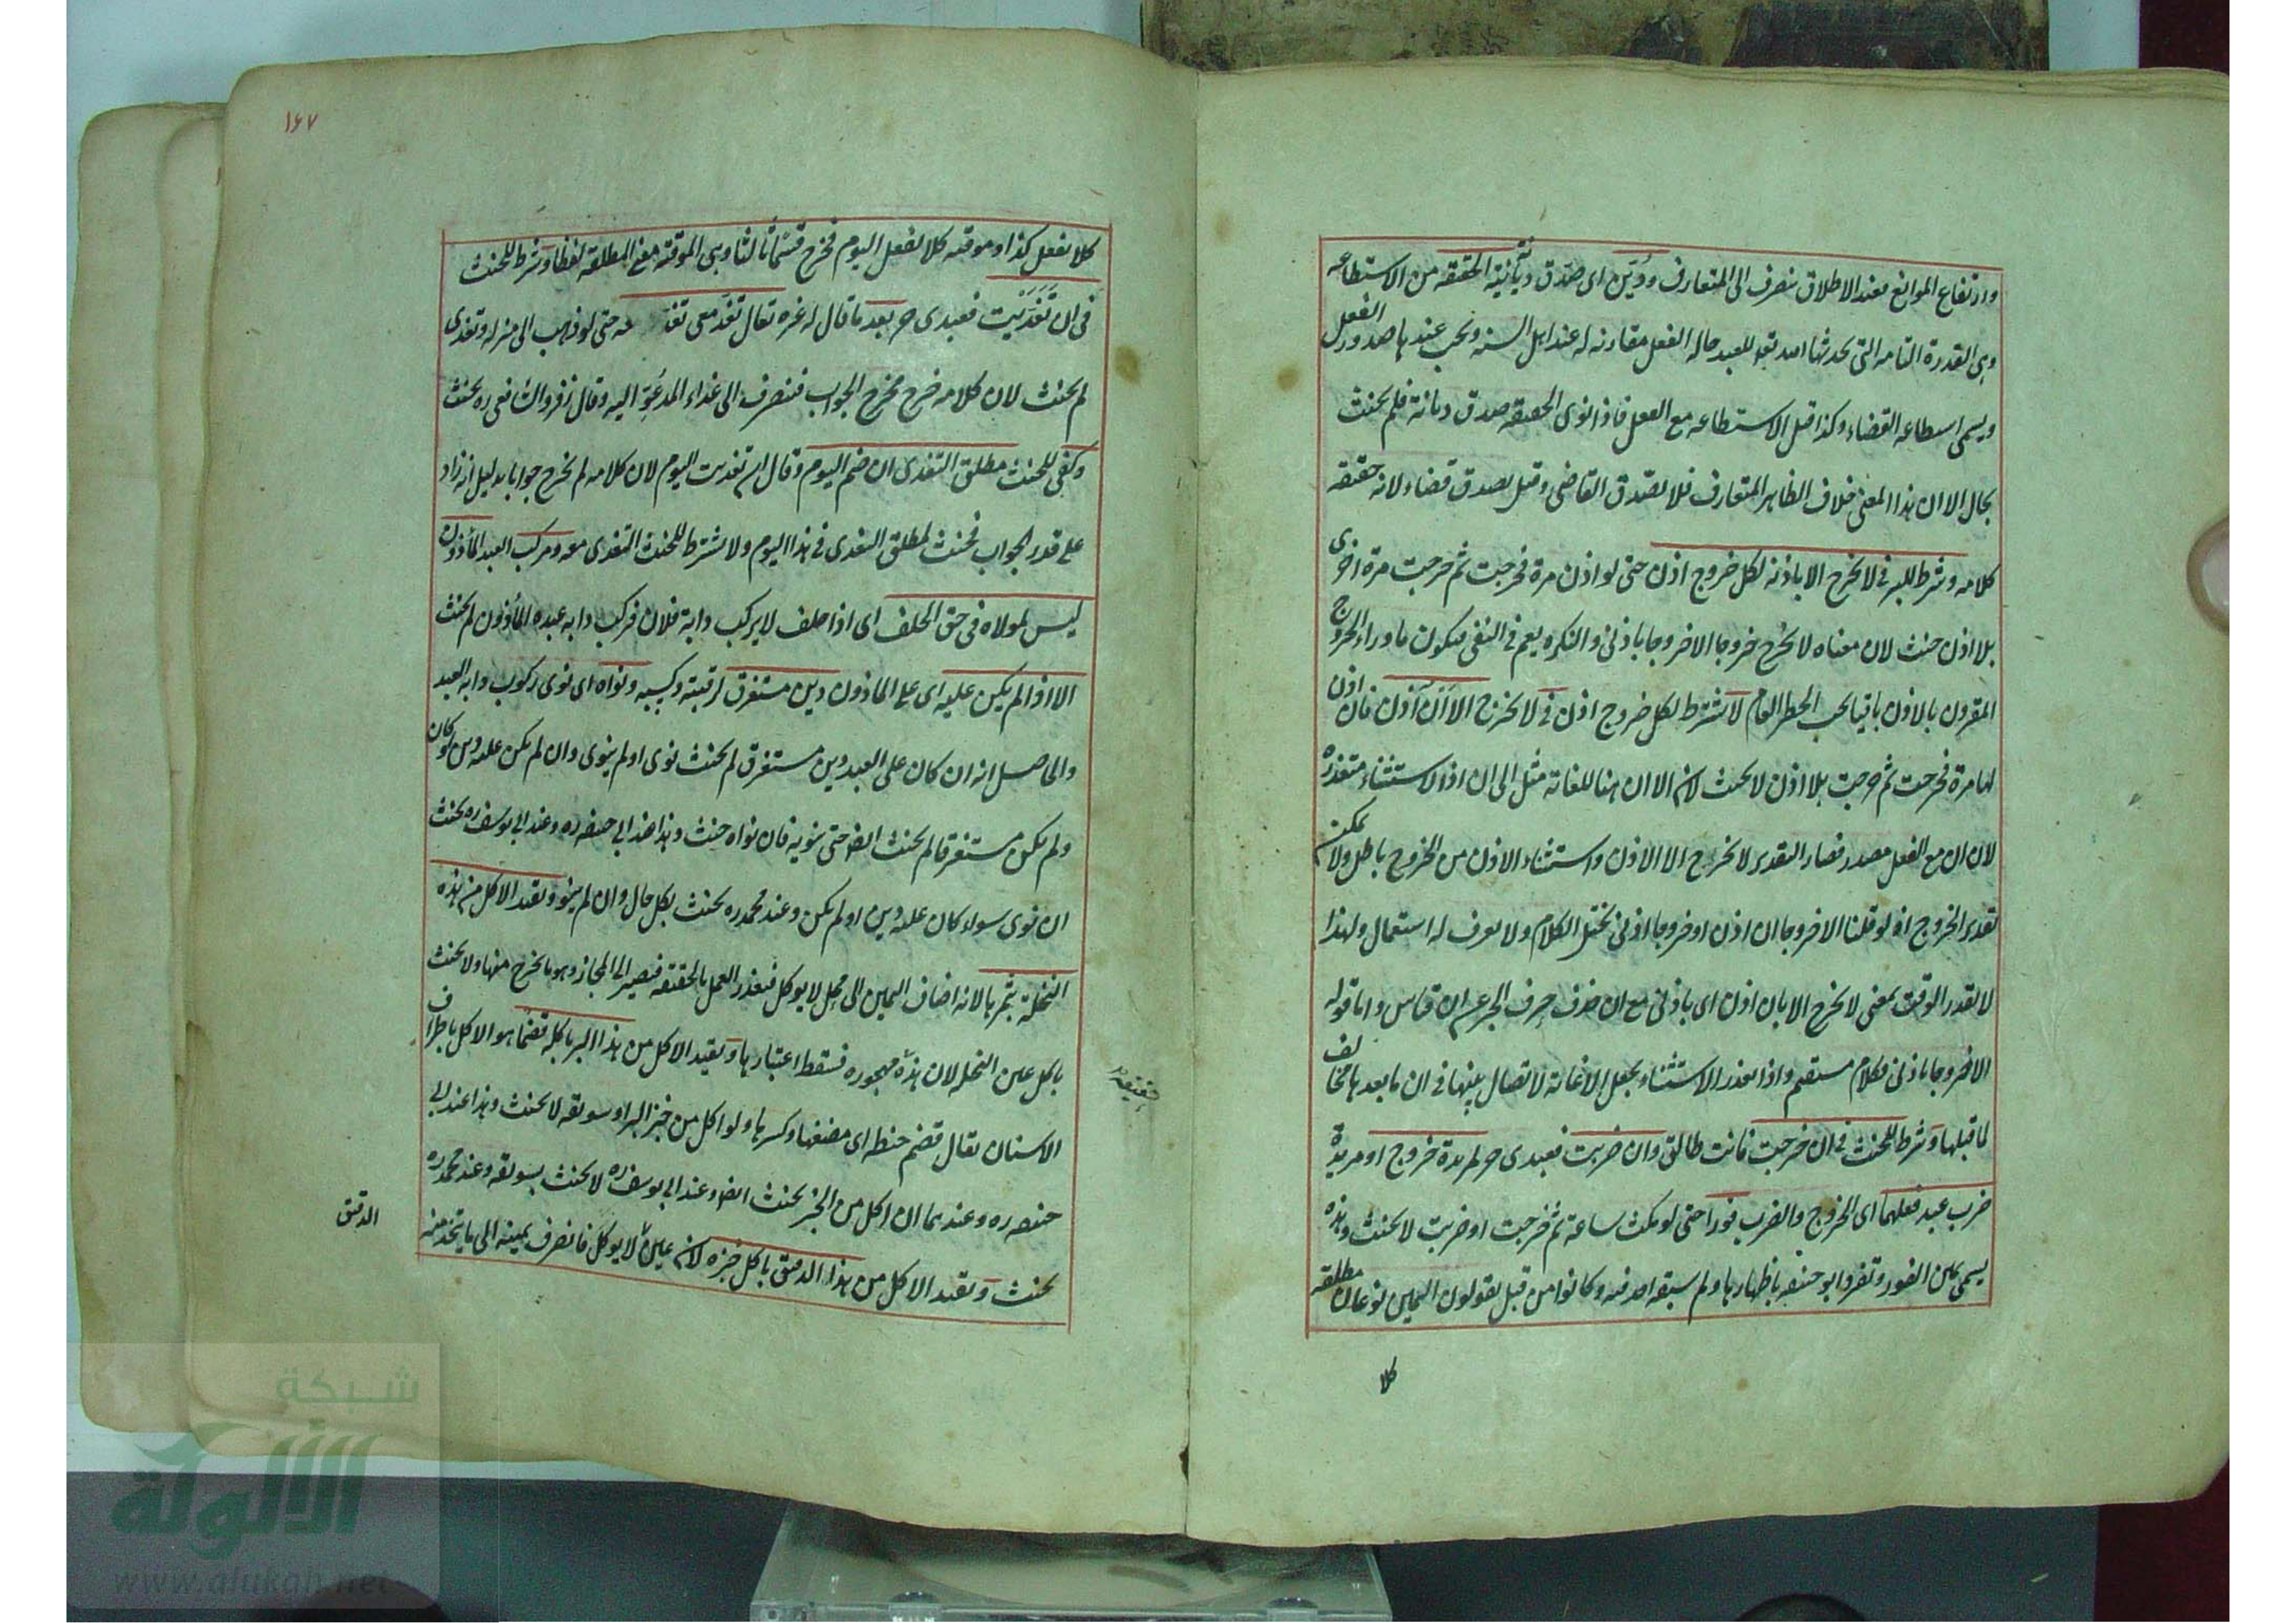 وارتفاع الموانع فعند الاطلاق ينصرف الى المتعارف ودُيّن اى صدق ديانة نيّة الحقيقة من الاستطاعة
وهى القدرة التامة التى يحدثها الله تعالى للعبد حالة الفعل مقارنة له عند اهل السنة ويجب عندها صدور الفعل
ويسمى استطاعة القضاء وكذا قيل الاستطاعة مع الفعل فاذا نوى الحقيقة صدق ديانة فلم يحنث
بحال الا ان هذا المعنى خلاف الظاهر المتعارف فلا يصدق القاضى وقيل يصدق قضاء لانه حقيقة
كلامه وشرط للبر فى لا يخرج الا باذنه لكل خروج اذن حتى لو اذن مرة فخرجت ثم خرجت مرة اخرى
بلا اذن حنث لان معناه لا يخرج خروجا الا خروجا باذنى والنكرة يعم فى النفى فيكون ما وراء الخروج
المقرون بالاذن باقيا تحت الحظر العام لا يشترط لكل خروج اذن فى لا يخرج الا اَن آذن فان اذن
لها مرة فخرجت ثم خرجت بلا اذن لا يحنث لان الا ان هنا للغاية مثل الى ان اذ الاستثناء متعذرة
لان ان مع الفعل مصدر فصار التقدير لا يخرج الا الاذن واستثناء الاذن من الخروج باطل ولا يمكن
تقدير الخروج اذ لو قلنا الا خروجا ان اذن او خروجا اذنى يختل الكلام ولا يعرف له استعمال ولهذا
لا يقدر الوقت بمعنى لا يخرج الا بان اذن اى باذنى مع ان حذف حرف الجر عن ان قياس واما قوله
الا خروجا باذنى فكلام مستقيم واذا تعذر الاستثناء يجعل للغاية لاتصال بينها فى ان ما بعدها مخالف
لما قبلها وشرط للحنث فى ان خرجت فانت طالق وان ضربت فعبدى حر لمريدة خروج او مريدة
ضرب عبد فعلهما اى الخروج والضرب فورا حتى لو مكث ساعة ثم خرجت او ضربت لا يحنث وهذه
يسمى يمين الفور وتفرد ابو حنيفة باظهارها ولم يسبقه احد فيه وكانوا من قبل يقولون اليمين نوعان مطلقة
كلا
١٦٧
كلا يفعل كذا وموقتة كلا يفعل اليوم فخرج قسمًا ثالثا وهى الموقتة معنى المطلقة لفظا وشرط للحنث
فى ان تَغَدَّيْت فعبدى حر بعد ما قال له غيره تعال تغدّ معى تغد معه حتى لو ذهب الى منزله وتغدى
لم يحنث لان كلامه خرج مخرج الجواب فينصرف الى غداء المدعُوّ اليه وقال زفر والشافعى ره يحنث
وكفى للحنث مطلق التغدى ان ضم اليوم وقال ان تغديت اليوم لان كلامه لم يخرج جوابا بدليل انه زاد
على قدر الجواب فيحنث لمطلق التغدى فى هذا اليوم ولا يشترط للحنث التغدى معه ومركب العبد المأذون
ليس لمولاه فى حق الحلف اى اذا حلف لا يركب دابة فلان فركب دابة عبده المأذون لم يحنث
الا اذا لم يكن عليه اى على الماذون دين مستغرق لرقبته وكسبه ونواه اى نوى ركوب دابة العبد
والحاصل انه ان كان على العبد دين مستغرق لم يحنث نوى او لم ينوى وان لم يكن عليه دين او كان
ولم يكن مستغرقا لم يحنث ايضا حتى ينويه فان نواه حنث وهذا عند ابى حنيفة ره وعند ابى يوسف ره يحنث
ان نوى سواء كان عليه دين او لم يكن وعند محمد ره يحنث بكل حال وان لم ينو وتقيد الاكل من هذه
النخلة بتمرها لانه اضاف اليمين الى محل لا يوكل فتعذر العمل بالحقيقة فيصير الى المجاز وهو ما يخرج منها ولا يحنث
باكل عين النخلة لان هذه مهجورة فسقط اعتبارها وتقيد الاكل من هذا البر باكله قضمًا هو الاكل باطراف
الاسنان يقال قضم حنطة اى مضغها وكسرها ولو اكل من خبز البر او سويقه لا يحنث وهذا عند ابى
حنيفة ره وعندهما ان اكل من الخبز يحنث ايضا وعند ابى يوسف ره لا يحنث بسويقه وعند محمد ره
يحنث وتقيد الاكل من هذا الدقيق باكل خبزه لان عينه لا يوكل فانصرف يمينه الى ما يتخذ منه
الدقيق
حقيقة
شبكة
الألوكة
www.alukah.net